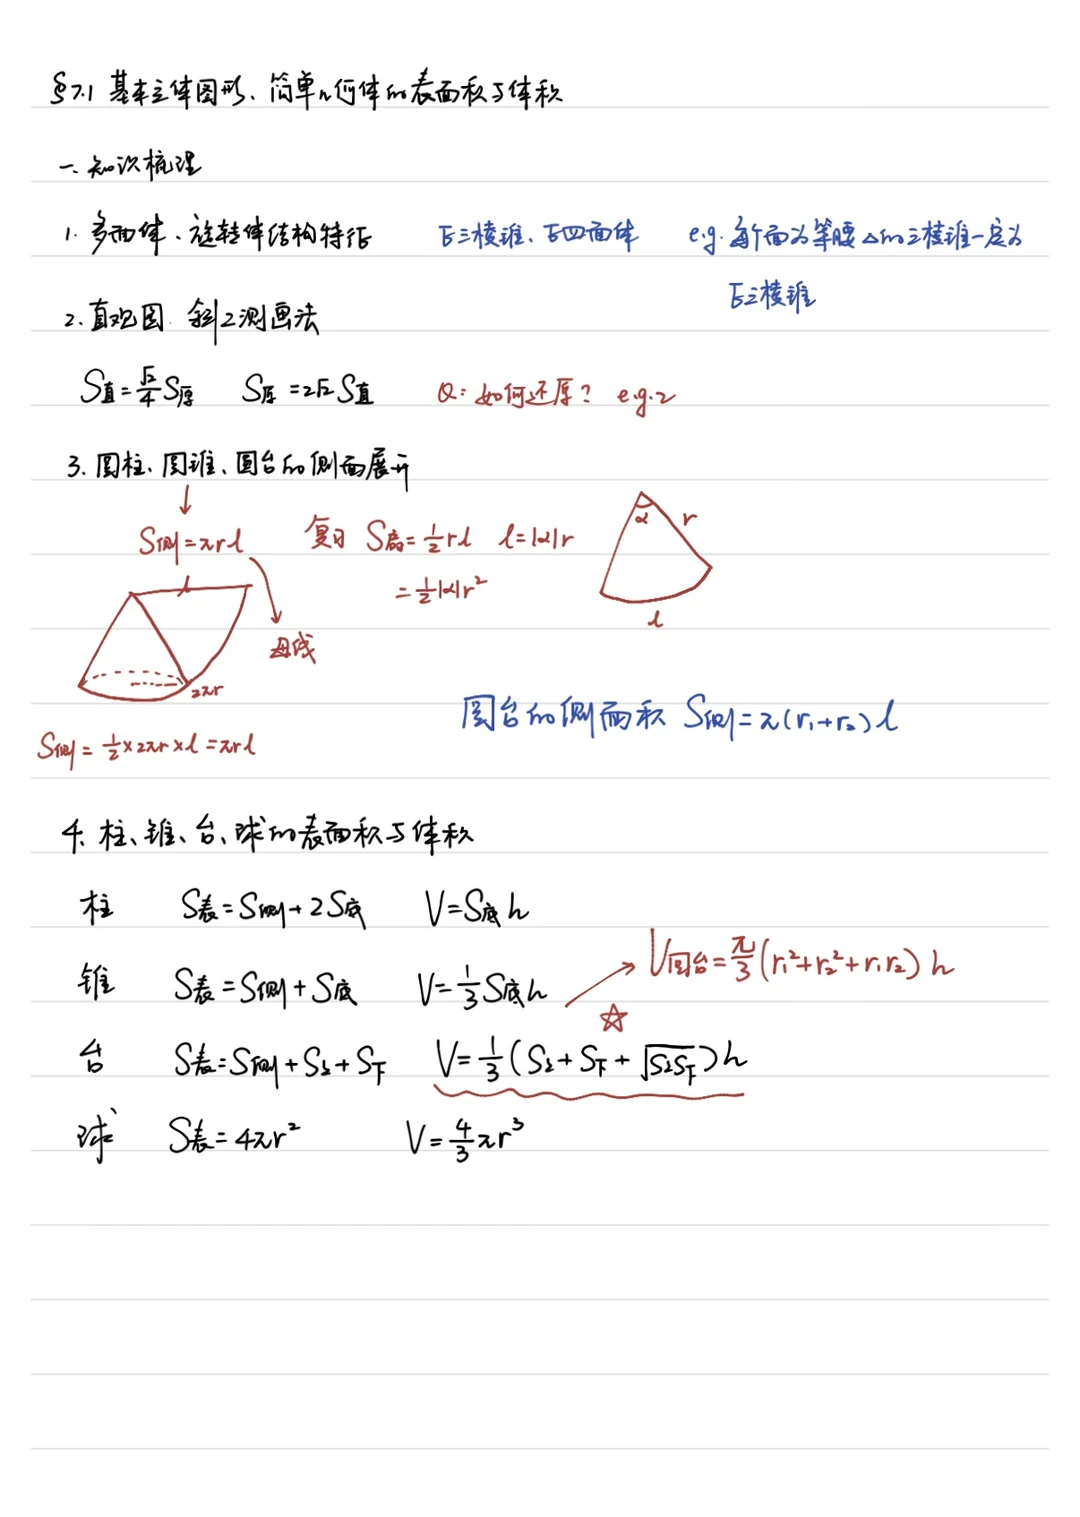 §7.1 基本立体图形、简单几何体的表面积与体积
一、知识梳理
1. 多面体、旋转体结构特征 正三棱锥、正四面体 e.g. 每个面为等腰△的三棱锥一定为
正三棱锥
2. 直观图 斜二测画法
S直=√2/4 S原 S原=2√2 S直 Q: 如何还原? e.g.2
3. 圆柱、圆锥、圆台的侧面展开
S侧=πrl 复习 S扇=1/2 rl l=|α|r
=1/2|α|r²
α r
l
l
母线
2πr
圆台的侧面积 S侧=π(r₁+r₂)l
S侧=1/2×2πr×l=πrl
4. 柱、锥、台、球的表面积与体积
柱 S表=S侧+2S底 V=S底h
V圆台=π/3(r₁²+r₂²+r₁r₂)h
锥 S表=S侧+S底 V=1/3 S底h
台 S表=S侧+S上+S下 V=1/3(S上+S下+√S上S下)h
球 S表=4πr² V=4/3 πr³